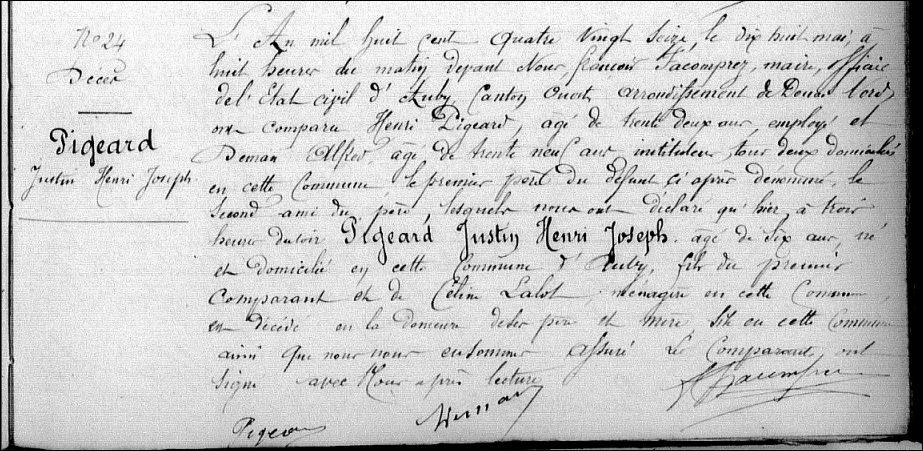 No 24
Décès
Pigeard
Justin Henri Joseph
L'An mil huit cent quatre vingt seize, le dix huit mai, à
huit heures du matin devant Nous, françois Jacomprez, maire, officier
de l'Etat civil d'Auby, Canton Ouest, arrondissement de Douai (Nord)
ont comparu Henri Pigeard, agé de trente deux ans, employé et
Deman Alfred, âgé de trente neuf ans, instituteur, tous deux domiciliés
en cette Commune, le premier père du défunt ci après dénommé, le
second ami du père, lesquels nous ont déclaré qu'hier, à trois
heures du soir, Pigeard Justin Henri Joseph, âgé de six ans, né
et domicilié en cette Commune d'Auby, fils du premier
comparant et de Céline Lalot, ménagère en cette Commune,
est décédé en la demeure de ses père et mère, sise en cette Commune
ainsi que nous nous en sommes assuré. Les Comparants ont
signé avec Nous après lecture
Pigeard